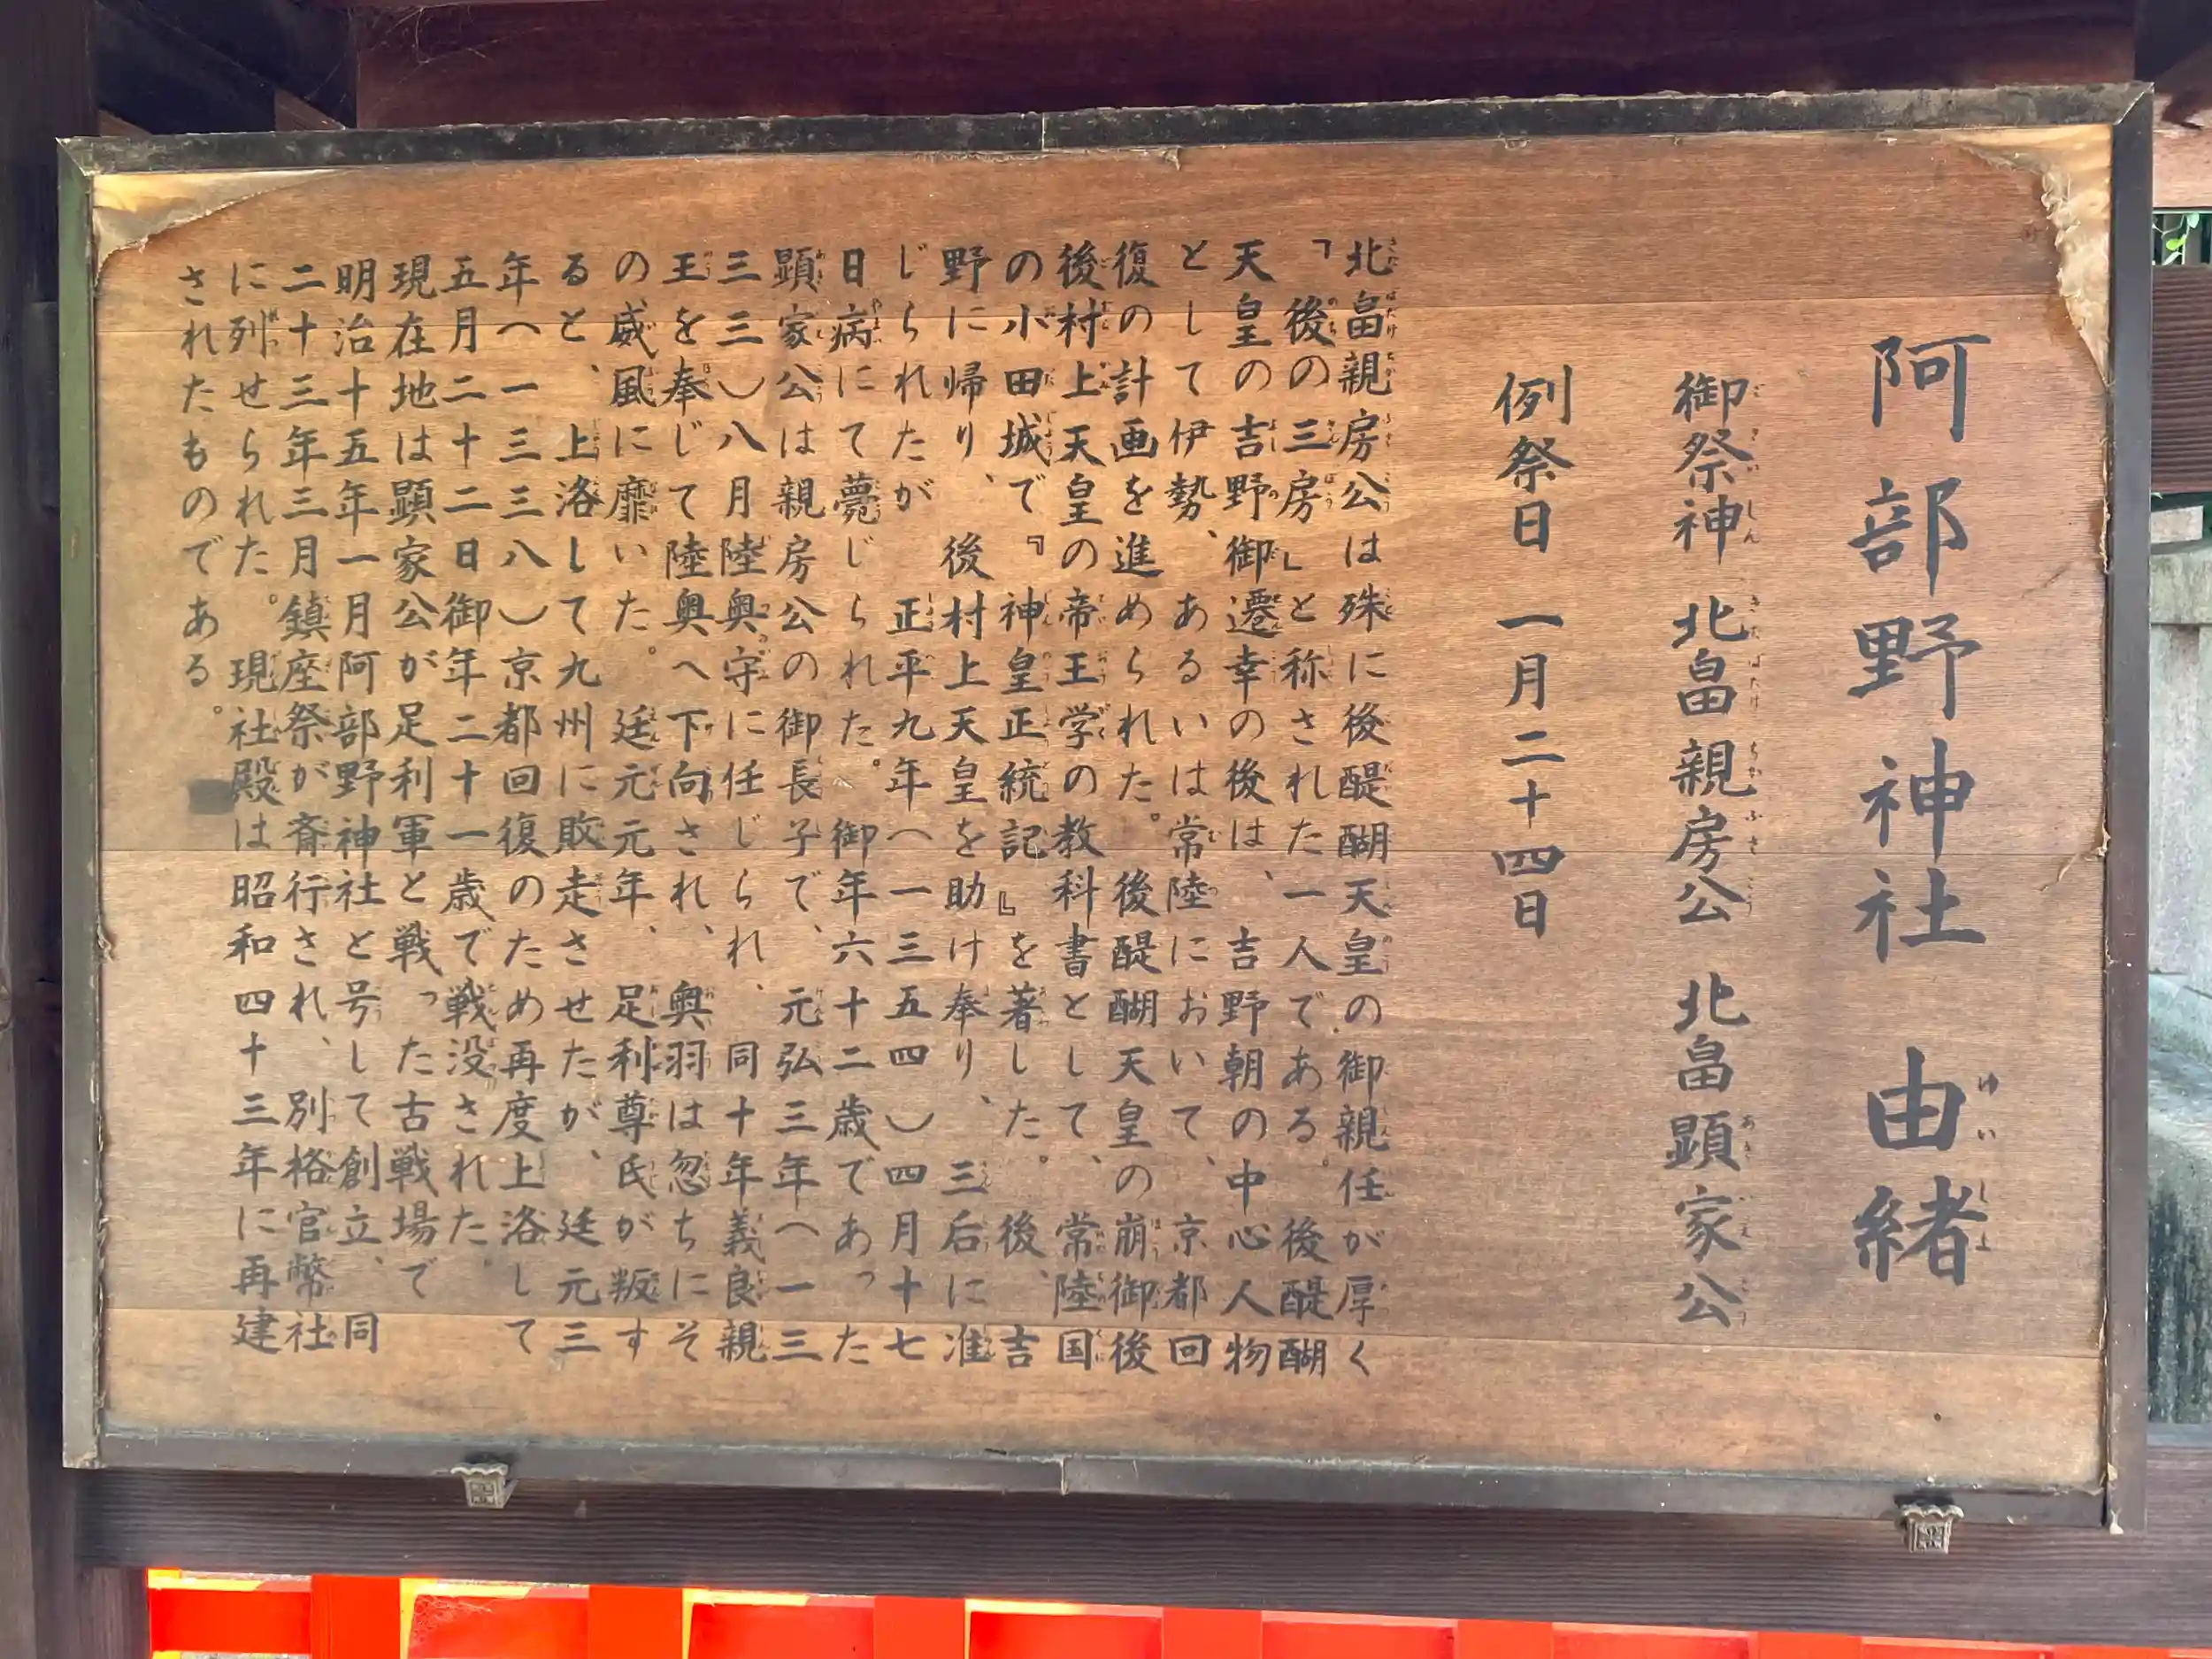 阿部野神社 由緒
御祭神 北畠親房公 北畠顕家公
例祭日 一月二十四日
北畠親房公は殊に後醍醐天皇の御親任が厚く
「後の三房」と称された一人である。後醍醐
天皇の吉野御遷幸の後は、吉野朝の中心人物
として伊勢、あるいは常陸において、京都回
復の計画を進められた。後醍醐天皇の崩御後
後村上天皇の帝王学の教科書として、常陸国
の小田城で『神皇正統記』を著した。後、吉
野に帰り、後村上天皇を助け奉り、三后に准
じられたが 正平九年(一三五四)四月十七
日病にて薨じられた。御年六十二歳であった
顕家公は親房公の御長子で、元弘三年(一三
三三)八月陸奥守に任じられ、同十年義良親
王を奉じて陸奥へ下向され、奥羽は忽ちにそ
の威風に靡いた。延元元年、足利尊氏が叛す
ると、上洛して九州に敗走させたが、延元三
年(一三三八)京都回復のため再度上洛して
五月二十二日御年二十一歳で戦没された。
現在地は顕家公が足利軍と戦った古戦場で
明治十五年一月阿部野神社と号して創立、同
二十三年三月鎮座祭が斉行され、別格官幣社
に列せられた。現社殿は昭和四十三年に再建
されたものである。